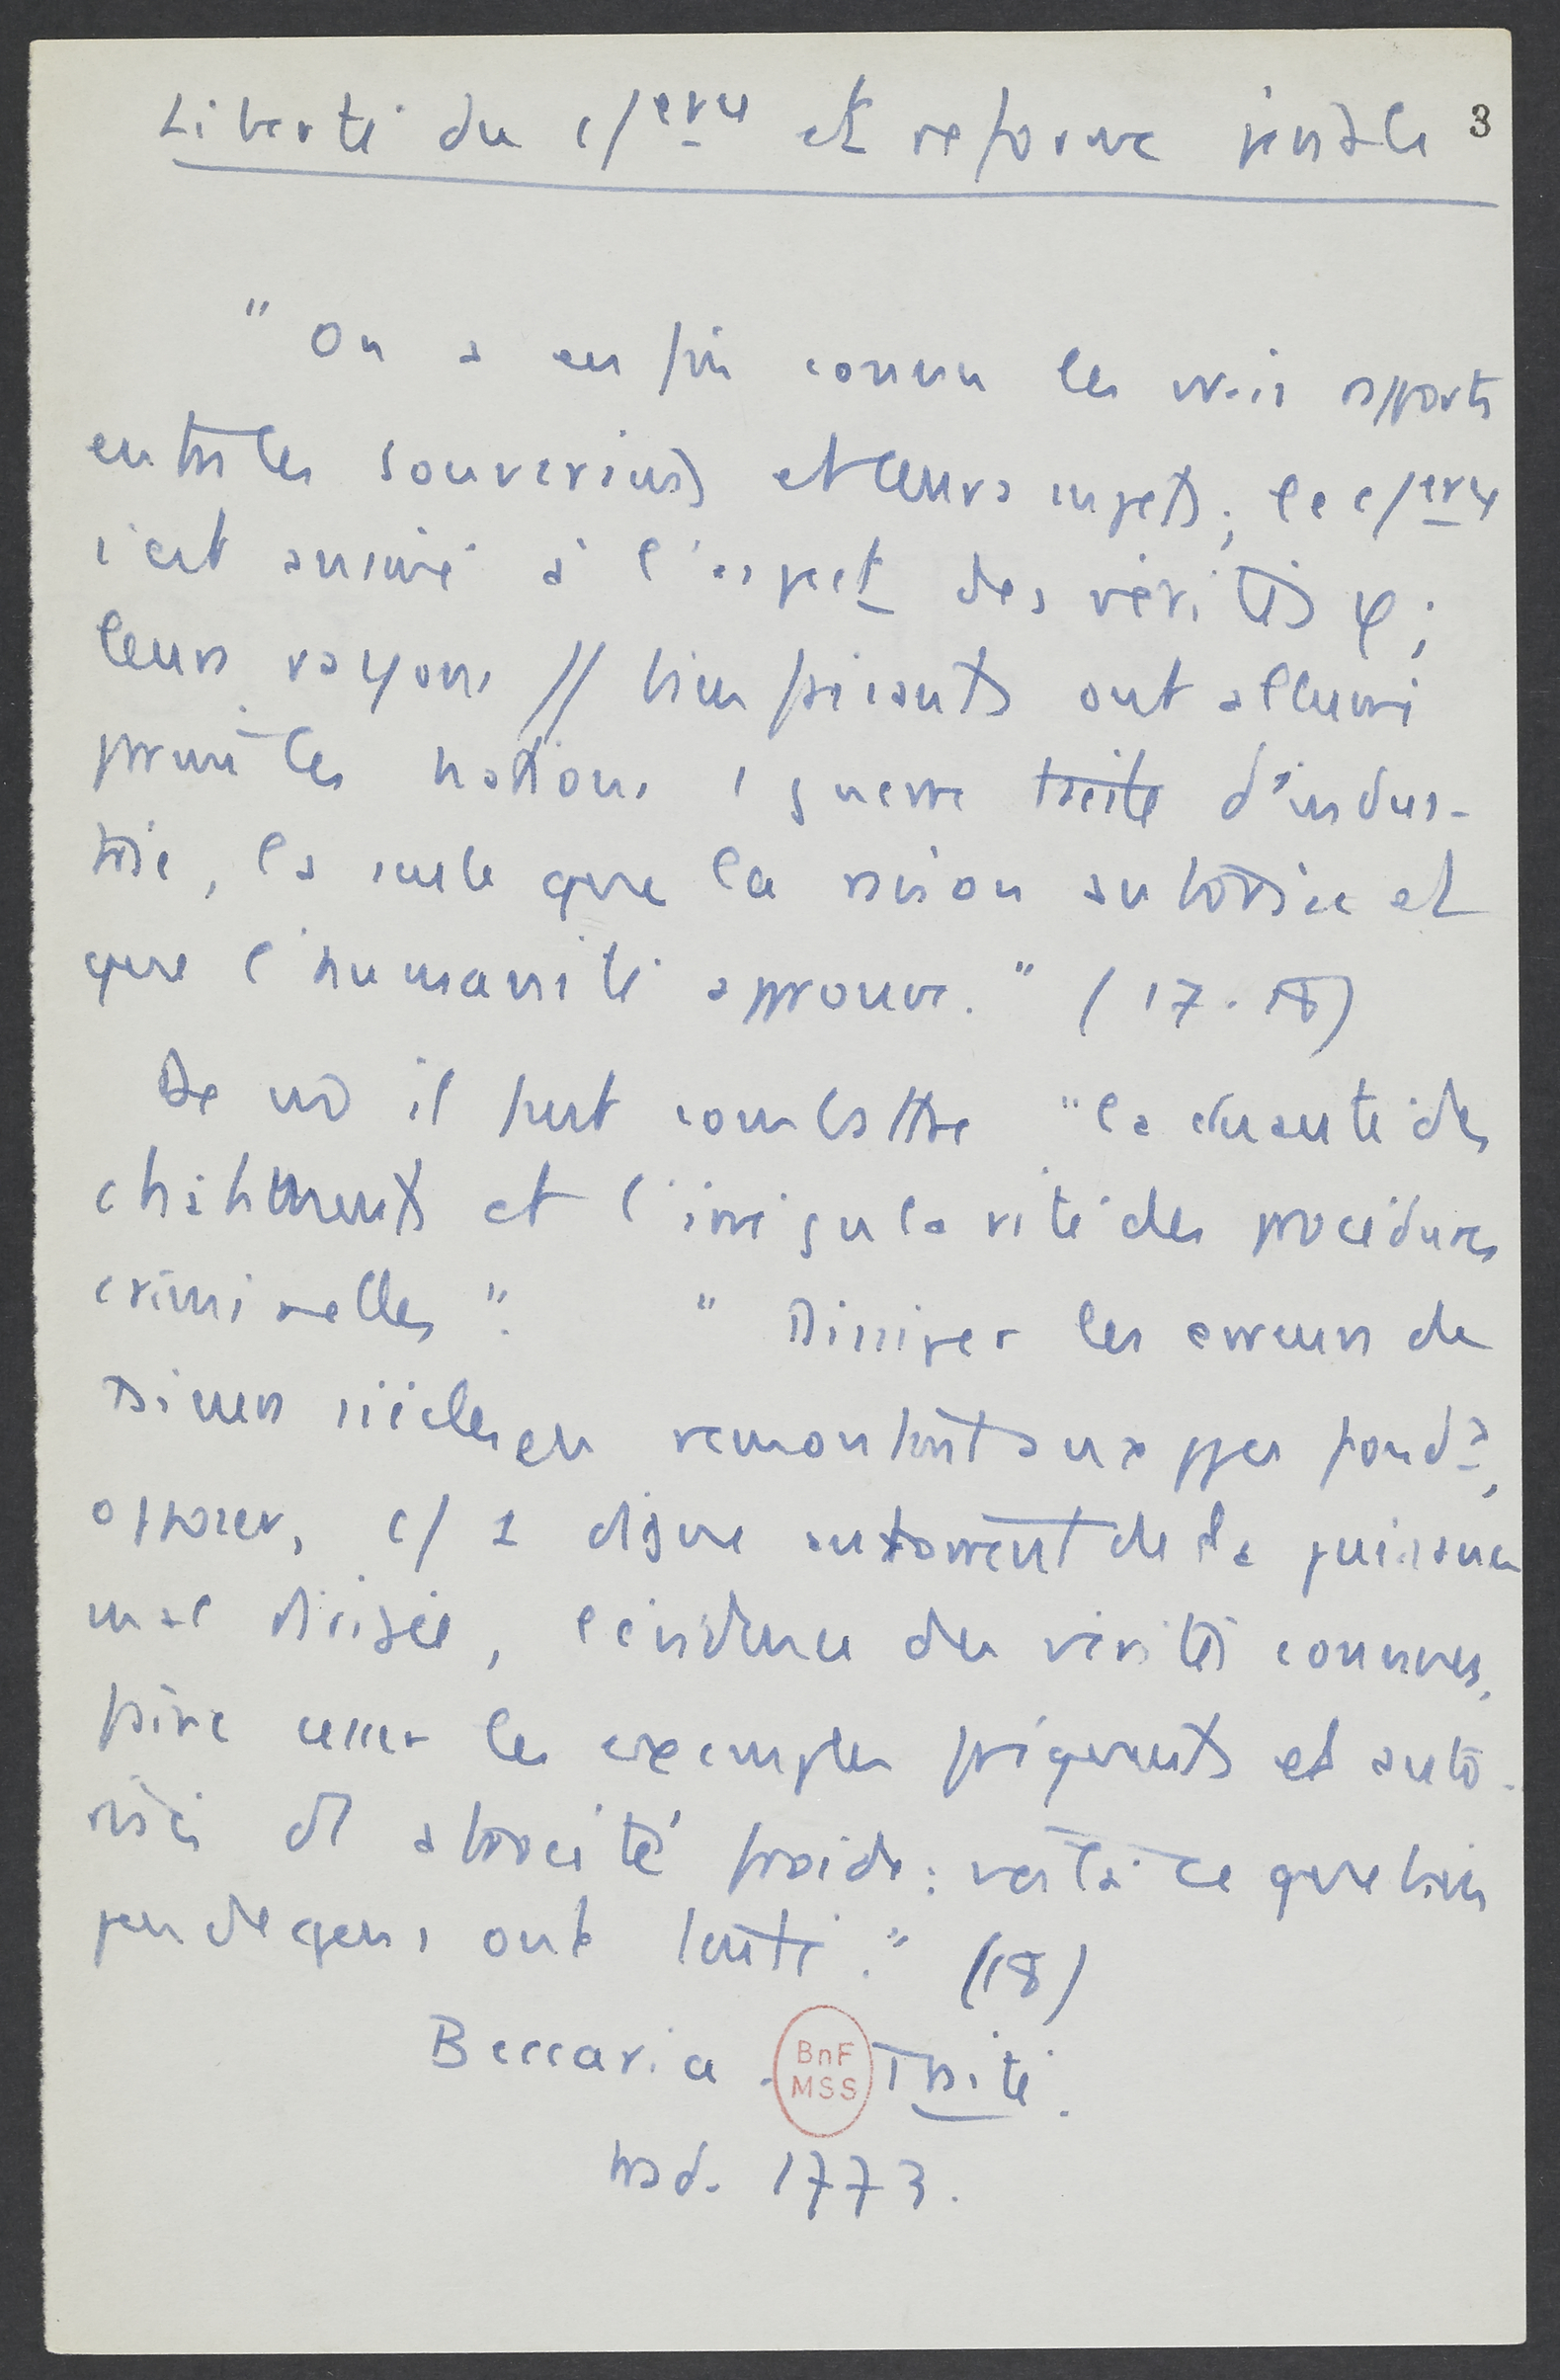 Liberté du c/erce et reforme pénale 3
" On a enfin connu les vrais rapports
entre les souverains et leurs sujets ; le c/erce
s'est animé à l'aspect des vérités φ ;
leurs rayons // bienfaisants ont allumé
parmi les nations 1 guerre tacite d'indus-
trie, la seule que la raison autorise et
que l'humanité approuve. " (17-18)
De m̄ il faut combattre "la cruauté des
châtiments et l'irrégularité des procédures
criminelles". " Dissiper les erreurs de
plusieurs siècles en remontant aux ppes fondx,
opposer, c/ 1 digue au torrent de la puissance
mal dirigée, l'évidence des vérités connues,
faire cesser les exemples fréquents et auto-
risés d' atrocité froide : voilà ce que bien
peu de gens ont tenté." (18)
Beccaria. Traité.
BnF
MSS
trad. 1773.